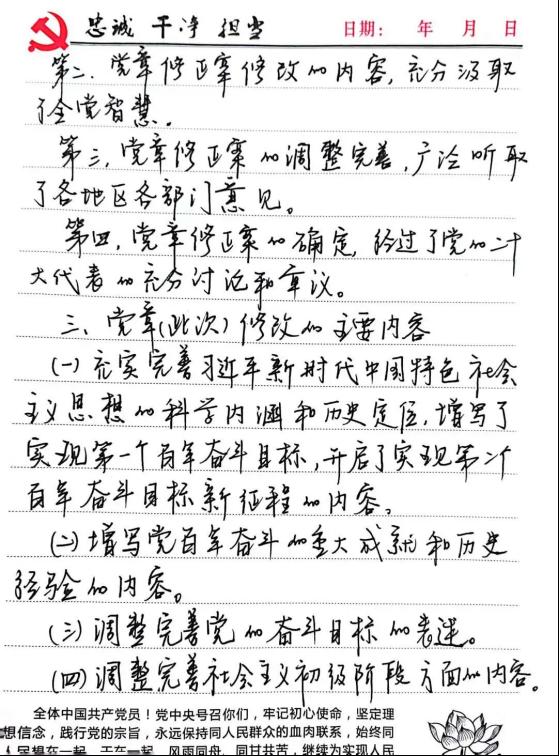 忠诚 干净 担当
日期: 年 月 日
第二、党章修正案修改的内容,充分汲取
了全党智慧。
第三,党章修正案的调整完善,广泛听取
了各地区各部门意见。
第四,党章修正案的确定,经过了党的二十
大代表的充分讨论和审议。
三、党章(此次)修改的主要内容
(一)充实完善习近平新时代中国特色社会
主义思想的科学内涵和历史定位,增写了
实现第一个百年奋斗目标,开启了实现第二个
百年奋斗目标新征程的内容。
(二)增写党百年奋斗的重大成就和历史
经验的内容。
(三)调整完善党的奋斗目标的表述。
(四)调整完善社会主义初级阶段方面的内容。
全体中国共产党员!党中央号召你们,牢记初心使命,坚定理
想信念,践行党的宗旨,永远保持同人民群众的血肉联系,始终同
人民想在一起、干在一起,风雨同舟、同甘共苦,继续为实现人民